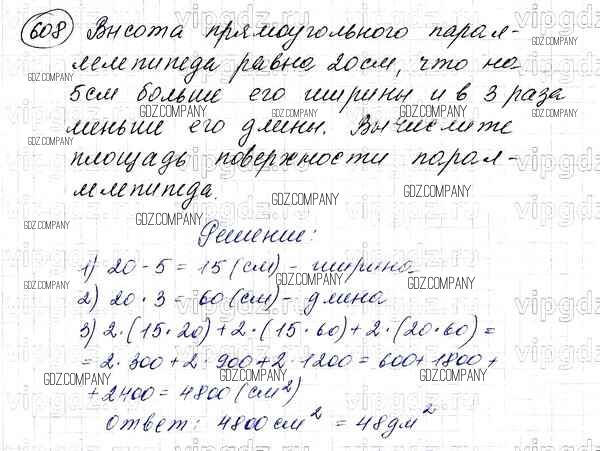 608 Высота прямоугольного парал-
лелепипеда равна 20 см, что на
5 см больше его ширины и в 3 раза
меньше его длины. Вычислите
площадь поверхности парал-
лелепипеда.
Решение:
1) 20 - 5 = 15 (см) - ширина
2) 20 · 3 = 60 (см) - длина
3) 2 · (15 · 20) + 2 · (15 · 60) + 2 · (20 · 60) =
= 2 · 300 + 2 · 900 + 2 · 1200 = 600 + 1800 +
+ 2400 = 4800 (см²)
Ответ: 4800 см² = 48 дм²